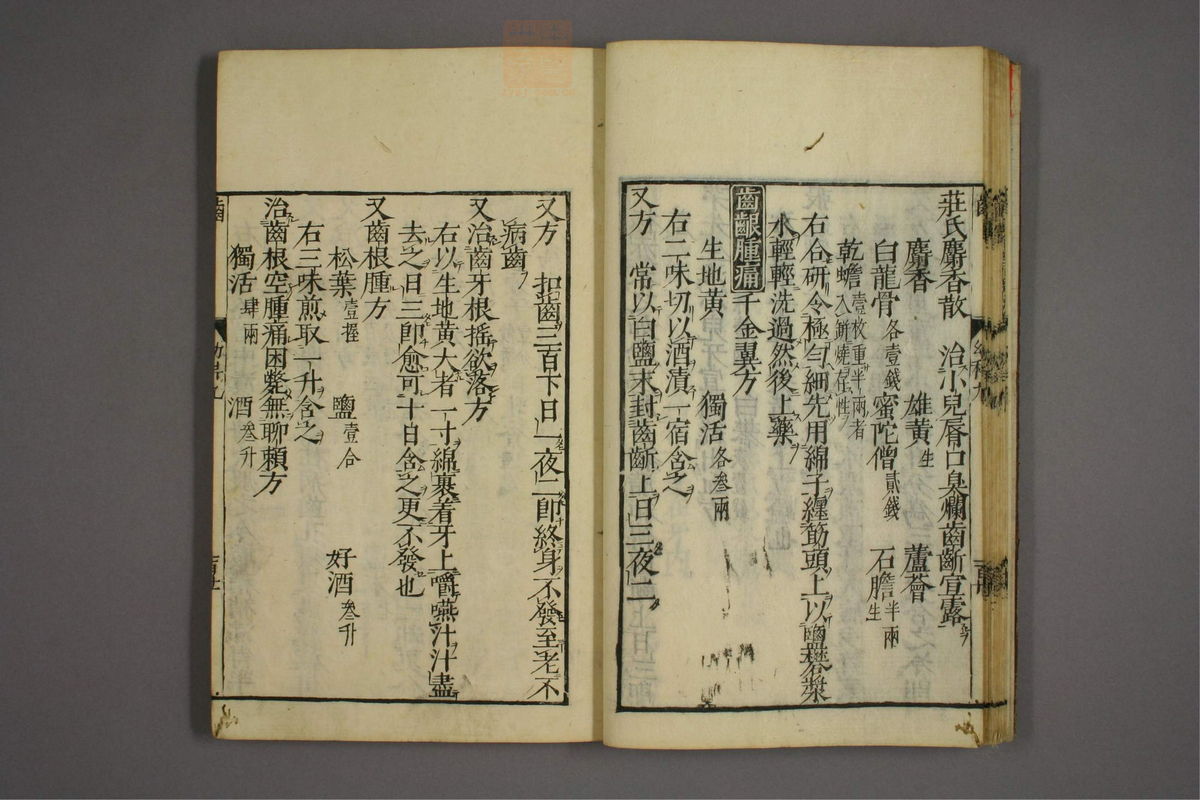 莊氏麝香散　治小兒脣口臭爛齒齗宣露
麝香　雄黃生　蘆薈
白龍骨各壹錢　蜜陀僧貳錢　石膽半兩生
乾蟾壹枚重半兩者入缾燒存性
右合研令極勻細先用綿子纏筯頭上以鹽漿
水輕輕洗過然後上藥
齒齦腫痛　千金翼方
生地黃　獨活各叄兩
右二味切以酒漬一宿含之
又方　常以白鹽末封齒齗上日三夜二
又方　扣齒三百下日一夜二即終身不發至老不
病齒
又治齒牙根搖欲落方
右以生地黃大者一寸綿裹着牙上嚼嚥汁汁盡
去之日三即愈可十日含之更不發也
又齒根腫方
松葉壹握　鹽壹合　好酒叄升
右三味煎取一升含之
治齒根空腫痛困獘無聊賴方
獨活肆兩　酒叄升